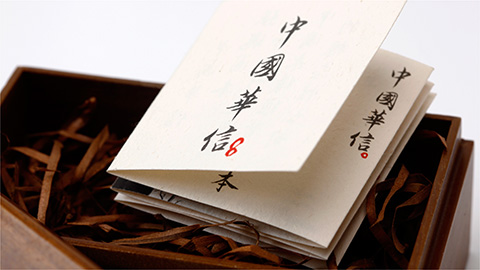 中國華信
本
中國華信